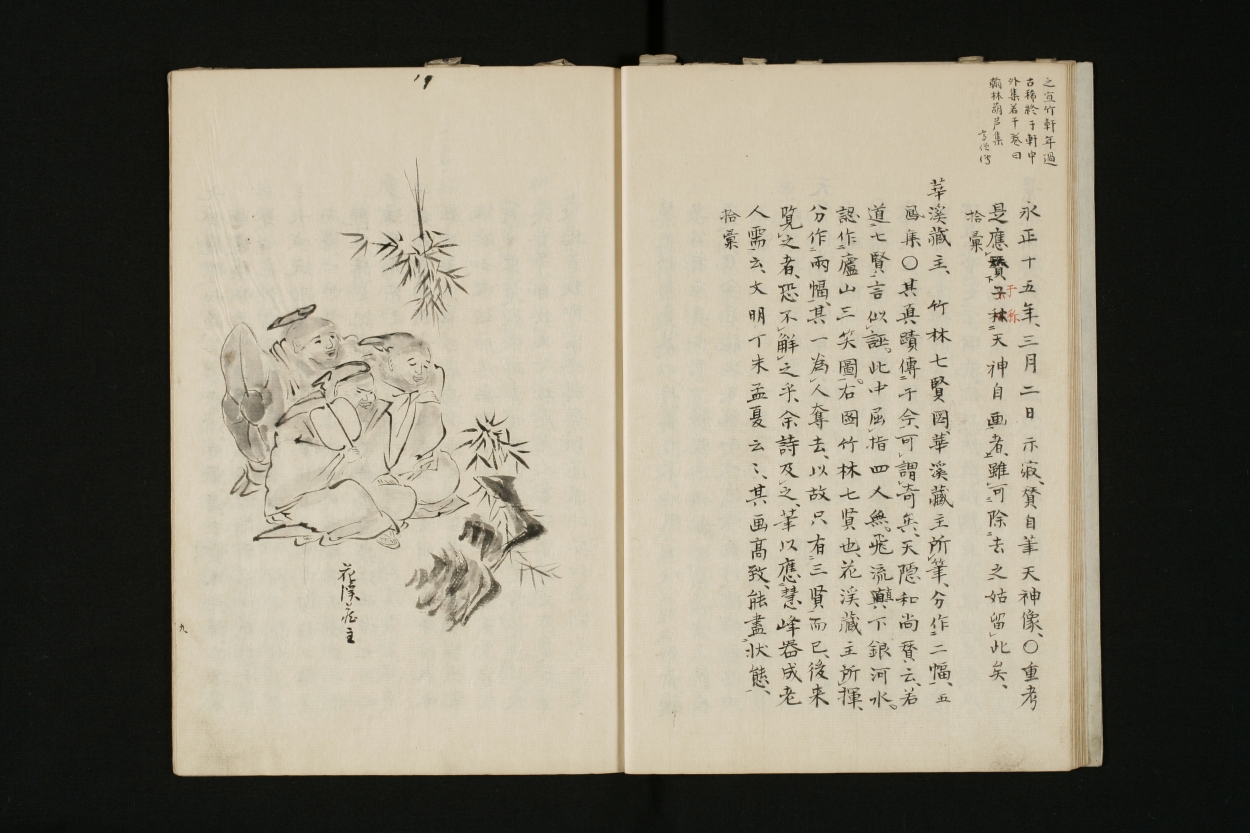 之宣竹軒年過
古稀終于軒中
外集若干卷曰
翰林葫芦集
高僧傳
永正十五年、三月二日示寂、賛自筆天神像、〇重考
是應賛天神自画者、雖可除去之姑留此矣、
于
拾彙
華溪藏主、竹林七賢図、華溪藏主所筆、分作二幅、五
画集〇其真蹟傳于今、可謂奇矣、天隠和尚賛云、若
道七賢言似誣。此中屈指四人無。飛流輿下銀河水。
認作廬山三笑圖。右図竹林七賢也、花溪藏主所揮、
分作兩幅、其一為人奪去、以故只有三賢而已、後来
覽之者、恐不解之乎、余詩及之、華以應慧峰器成老
人需云、文明丁未孟夏云〻、其画高致、能盡状態、
拾彙
19
花溪藏主
九